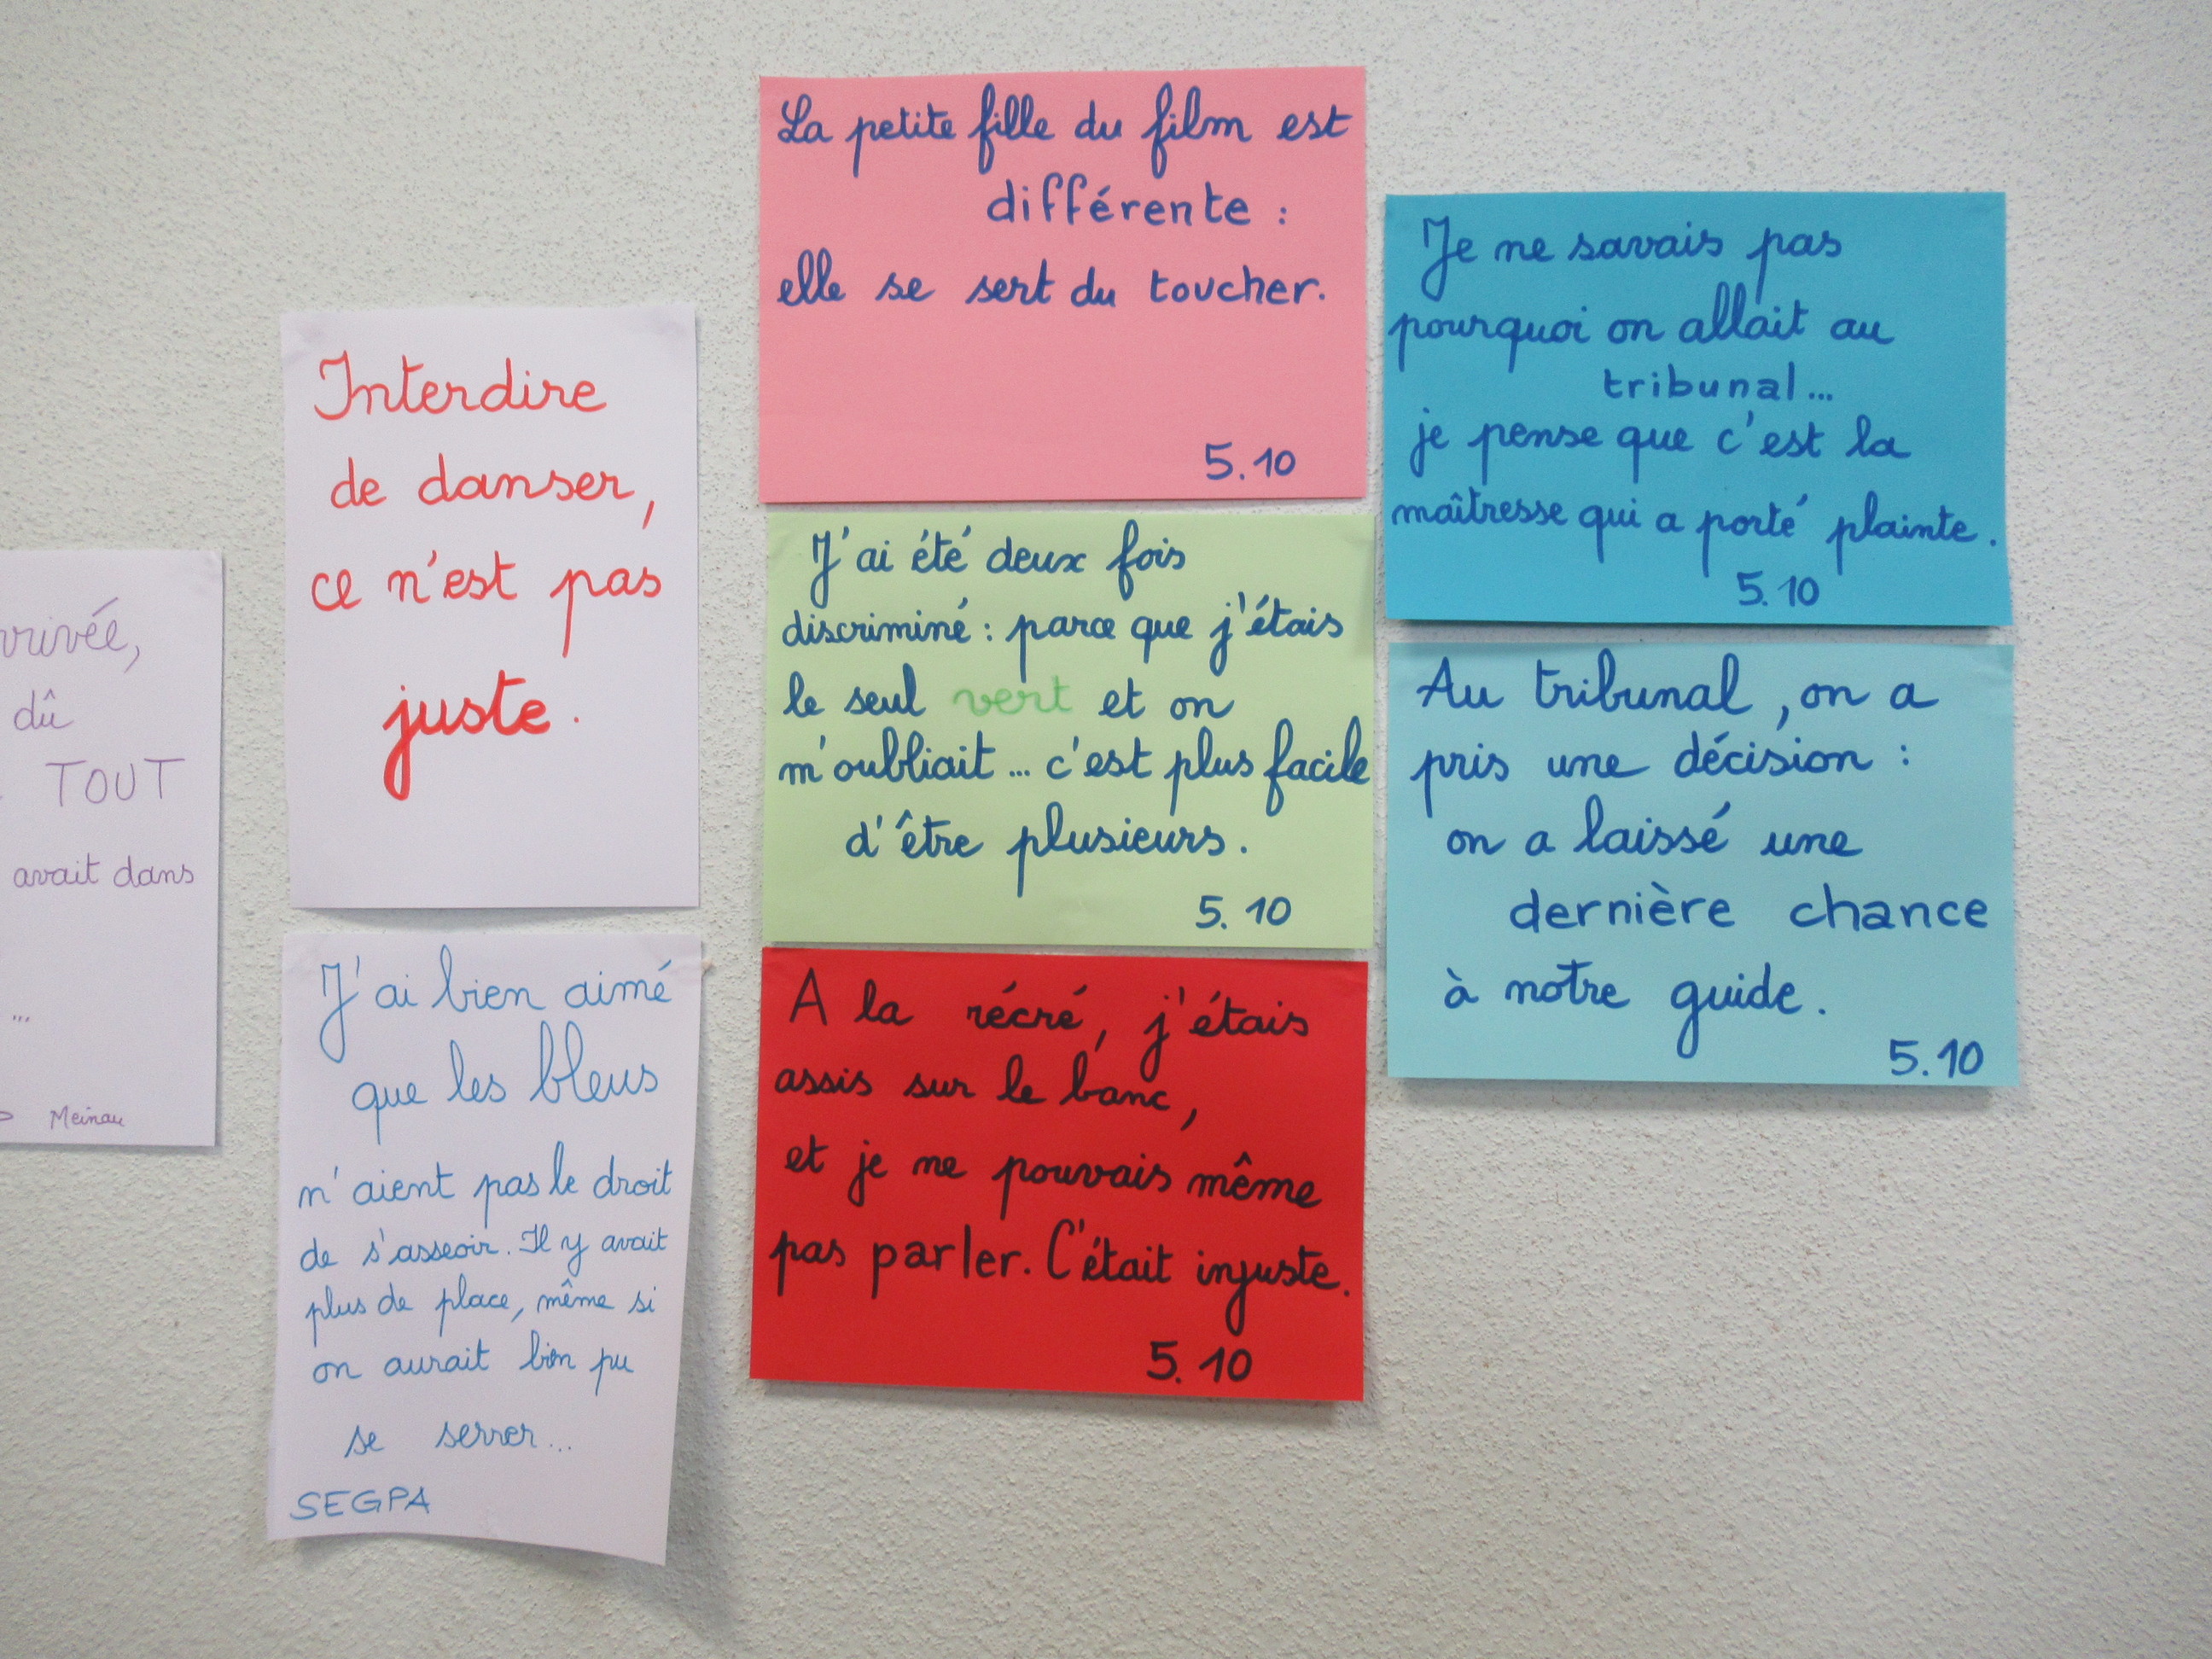 dû
TOUT
avait dans
...
Meinau
Interdire
de danser,
ce n'est pas
juste.
J'ai bien aimé
que les bleus
n'aient pas le droit
de s'asseoir. Il y avait
plus de place, même si
on aurait bien pu
se serrer...
SEGPA
La petite fille du film est
différente :
elle se sert du toucher.
5.10
J'ai été deux fois
discriminé : parce que j'étais
le seul vert et on
m'oubliait... c'est plus facile
d'être plusieurs.
5.10
A la récré, j'étais
assis sur le banc,
et je ne pouvais même
pas parler. C'était injuste.
5.10
Je ne savais pas
pourquoi on allait au
tribunal...
je pense que c'est la
maîtresse qui a porté plainte.
5.10
Au tribunal, on a
pris une décision :
on a laissé une
dernière chance
à notre guide.
5.10